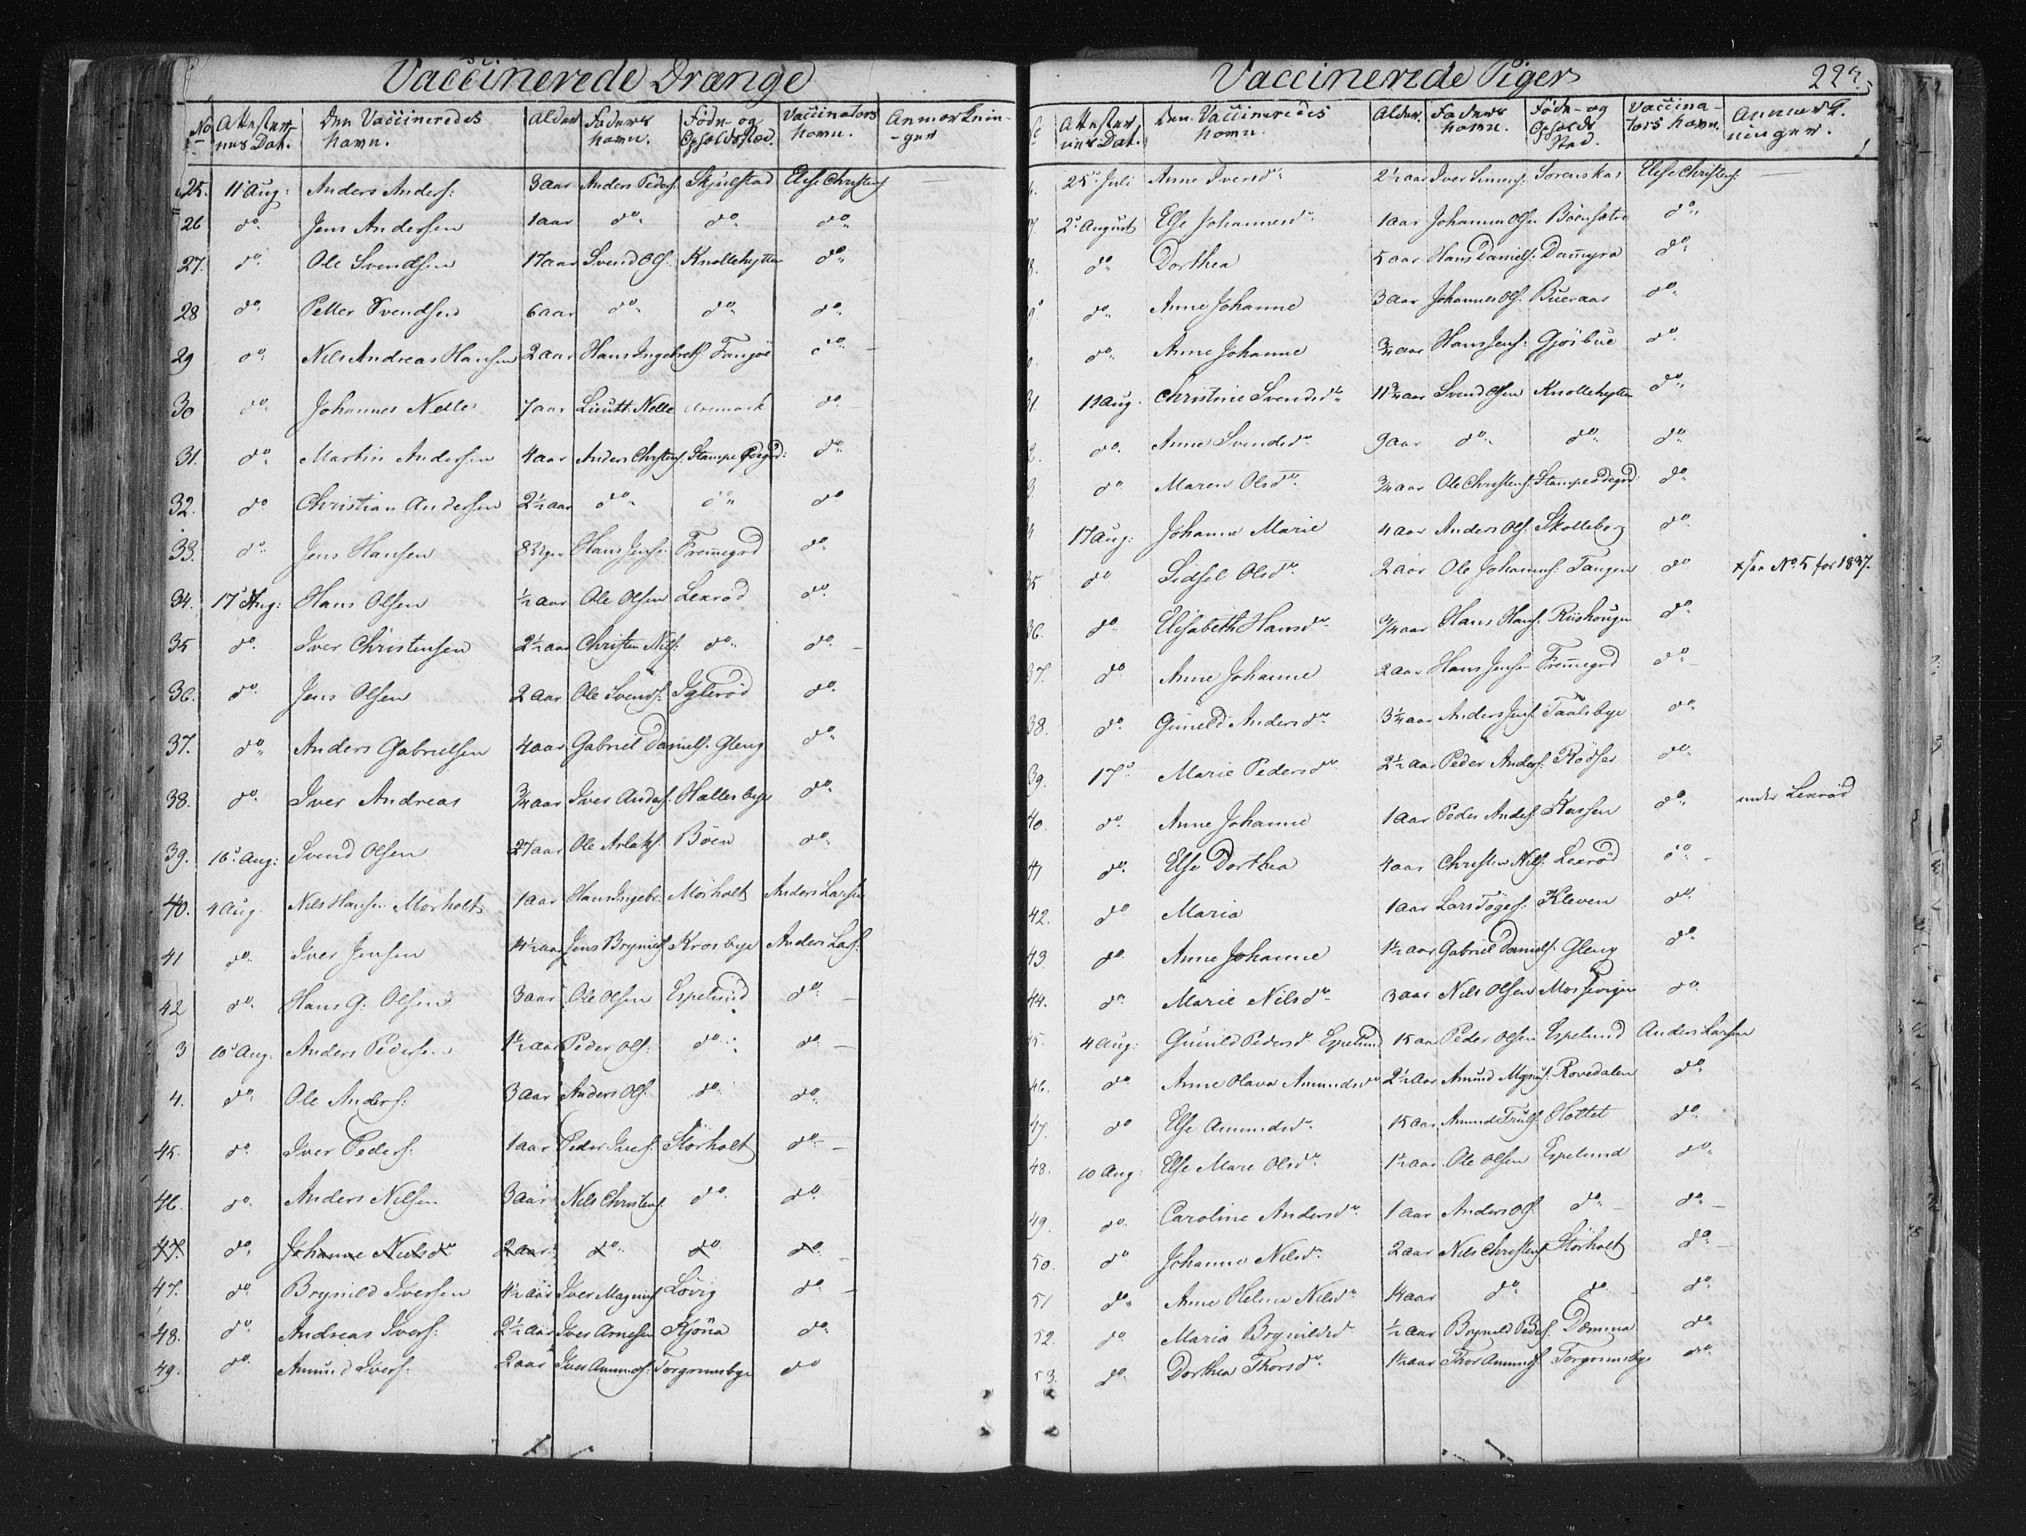 Vaccinerede Drænge
No | Attester- nes Dat. | Den Vaccineredes Navn. | Alder | Faders Navn. | Føde- og Opholdssted. | Vaccinators Navn. | Anmærknin- -ger
25. 11' Aug: Anders Anders: 3 aar Anders Peders: Skjulstad Else Christens:
26 do. Jens Andersen 1 aar do. do. do.
27. do. Ole Svendsen 17 aar Svend Ols: Knollehytten do.
28 do. Petter Svendsen 6 aar do. do. do.
29 do. Nils Andreas Hansen 2 aar Hans Ingebrets: Tangöe do.
30 do. Johannes Nelle 7 aar Lieutt. Nelle do.
31. do. Martin Andersen 4 aar Anders Christens: Stampe Ødegrd: do.
32. do Christian Andersen 2½ aar do. do. do
33. do. Jens Hansen Hans Jens: Fremegrd do.
34. 17' Aug: Hans Olsen ½ aar Ole Olsen Lexröd do.
35 do. Iver Christensen 2½ aar Christen Nils: do. do.
36. do. Jens Olsen 2 aar Ole Svends: Igleröd do.
37. do. Anders Gabrielsen ¼ aar Gabriel Daniels. Gleng do.
38. do. Iver Andreas ¾ aar Iver Anders: Hallesbye do.
39. 16' Aug: Svend Olsen 27 aar Ole Aslaks: Böen do.
40. 4 Aug. Nils Hansen Mörholt 1 aar Hans Ingebr: Mörholt Anders Larsen
41 do. Iver Jensen 4½ aar Jens Brynils: Krosbye Anders Lars:
42 do. Hans G: Olsen 3 aar Ole Olsen Espelund do.
3 10' Aug. Anders Pedersen 1½ aar Peder Ols: do. do.
4. do. Ole Anders: 3 aar Anders Ols: do. do.
45. do. Iver Peders: 1 aar Peder Ivers: Störholt do.
46. do. Anders Nilsen 3 aar Nils Christens: do. do.
47. do. Johanne Nielsdr 2 aar do. do. do.
47. do. Brynild Iversen 4½ aar Iver Magnus: Lövig do.
48. do. Andreas Ivers: 2½ aar Iver Arnesen Kjöna do.
49. do. Amund Ivers: 2 aar Iver Amunds: Torgrimsbye do
Vaccinerede Piger 227.
Attester nes Dat. | Den Vaccineredes Navn. | Alder. | Faders Navn. | Føde- og Opholds Sted. | Vaccina- tors Navn. | Anmerk- ninger.
25' Juli Anne Iversdr. 2½ aar Iver Simens: Sorenskas Else Christens:
7. 2' August Else Johannesdr. 1 aar Johannes Olsen Böensætre do.
8. do. Dorthea 5 aar Hans Daniels: Damyra do.
do. Anne Johanne 3 aar Johannes Ols. Bueraas do.
do. Anne Johanne ¾ aar Hans Jens: Gjösbue do.
31. 11 Aug. Christine Svendsdr. 11¾ aar Svend Olsen Knollehytten do.
2. do. Anne Svendsdr. 9 aar do. do. do.
3. do Maren Olsdr. ¾ aar Ole Christens: Stampeödegrd: do.
4 17 Aug: Johanne Marie 4 aar Anders Ols: Skolleborg do.
35 do Sidsel Olsdr. 2 aar Ole Johannes: Tangen do +saa No. 5 for 1837.
36. do. Elisabeth Hansdr. ¾ aar Hans Hans: Riishougen do
37. do Anne Johanne 2 aar Hans Jensen Fremegrd do.
38. do. Gunild Andersdr. 3¼ aar Anders Jens: Taalsbye do.
39. 17' Marie Pedersdr. 2½ aar Peder Anders: Rödser do.
40. do. Anne Johanne 1 aar Peder Anders: Kassen do. under Lexröd
41 do. Else Dorthea 4 aar Christen Nils: Lexröd do.
42. do Maria 1 aar Lars Töges: Kleven do.
43. do. Anne Johanne 1½ aar Gabriel Daniels: Gleng do.
44. do. Marie Nilsdr. 3 aar Nils Olsen Mosseviga do.
45. 4 Aug: Gunild Pedersdr. Espelund 15 aar Peder Olsen Espelund Anders Larsen
46. do. Anne Olava Amundsdr. 2½ aar Amund Rovedalen do.
47. do Else Amundsdr. 15 aar Amund Truls: Holtet do.
48. 10 Aug: Else Mare Olsdr. 1½ aar Ole Olsen Espelund do.
49. do. Caroline Andersdr. 1 aar Anders Ols: do. do.
50. do Johanne Nilsdr. 2 aar Nils Christens: Störholt do.
51 do. Anne Helene Nilsdr. ¼ aar do. do. do.
52. do. Maria Brynildsd ½ aar Brynild Peders: Damma do.
53. do. Dorthea Thorsdr. 1½ aar Thor Amunds: Torgrimsbye do.